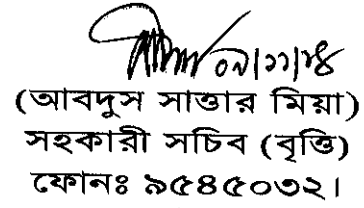 ০৯|১১|১৪
(আবদুস সাত্তার মিয়া)
সহকারী সচিব (বৃত্তি)
ফোনঃ ৯৫৪৫০৩২।